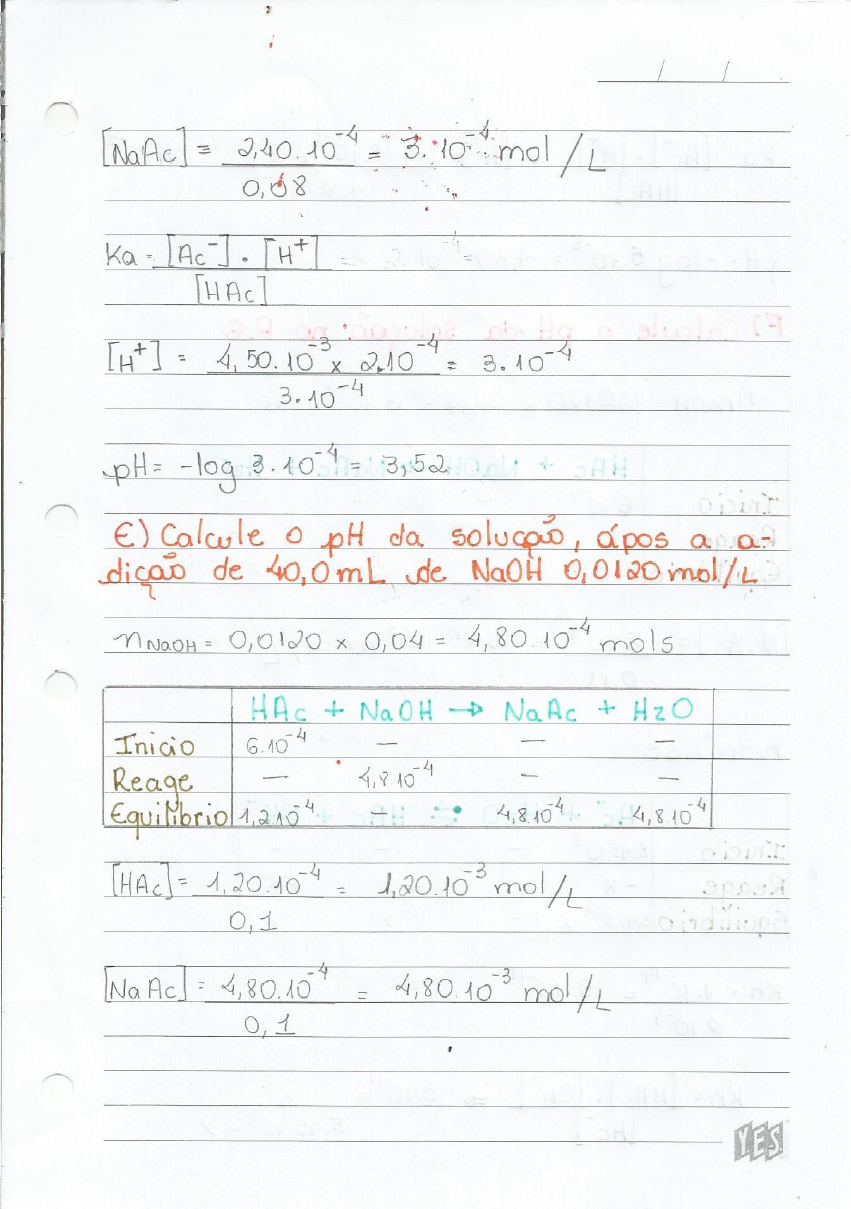 / /
[NaAc] = 2,40.10⁻⁴ = 3.10⁻⁴ mol/L
0,08
Ka = [Ac⁻] . [H⁺]
[HAc]
[H⁺] = 4,50.10⁻³ x 2.10⁻⁴ = 3.10⁻⁴
3.10⁻⁴
pH = -log 3.10⁻⁴ = 3,52
E) Calcule o pH da solução, ápos a a-
dição de 40,0mL de NaOH 0,0120mol/L
nNaOH = 0,0120 x 0,04 = 4,80.10⁻⁴ mols
HAc + NaOH → NaAc + H2O
Inicio 6.10⁻⁴ — — —
Reage — 4,8.10⁻⁴ — —
Equilíbrio 1,2.10⁻⁴ — 4,8.10⁻⁴ 4,8.10⁻⁴
[HAc] = 1,20.10⁻⁴ = 1,20.10⁻³ mol/L
0,1
[NaAc] = 4,80.10⁻⁴ = 4,80.10⁻³ mol/L
0,1
YES